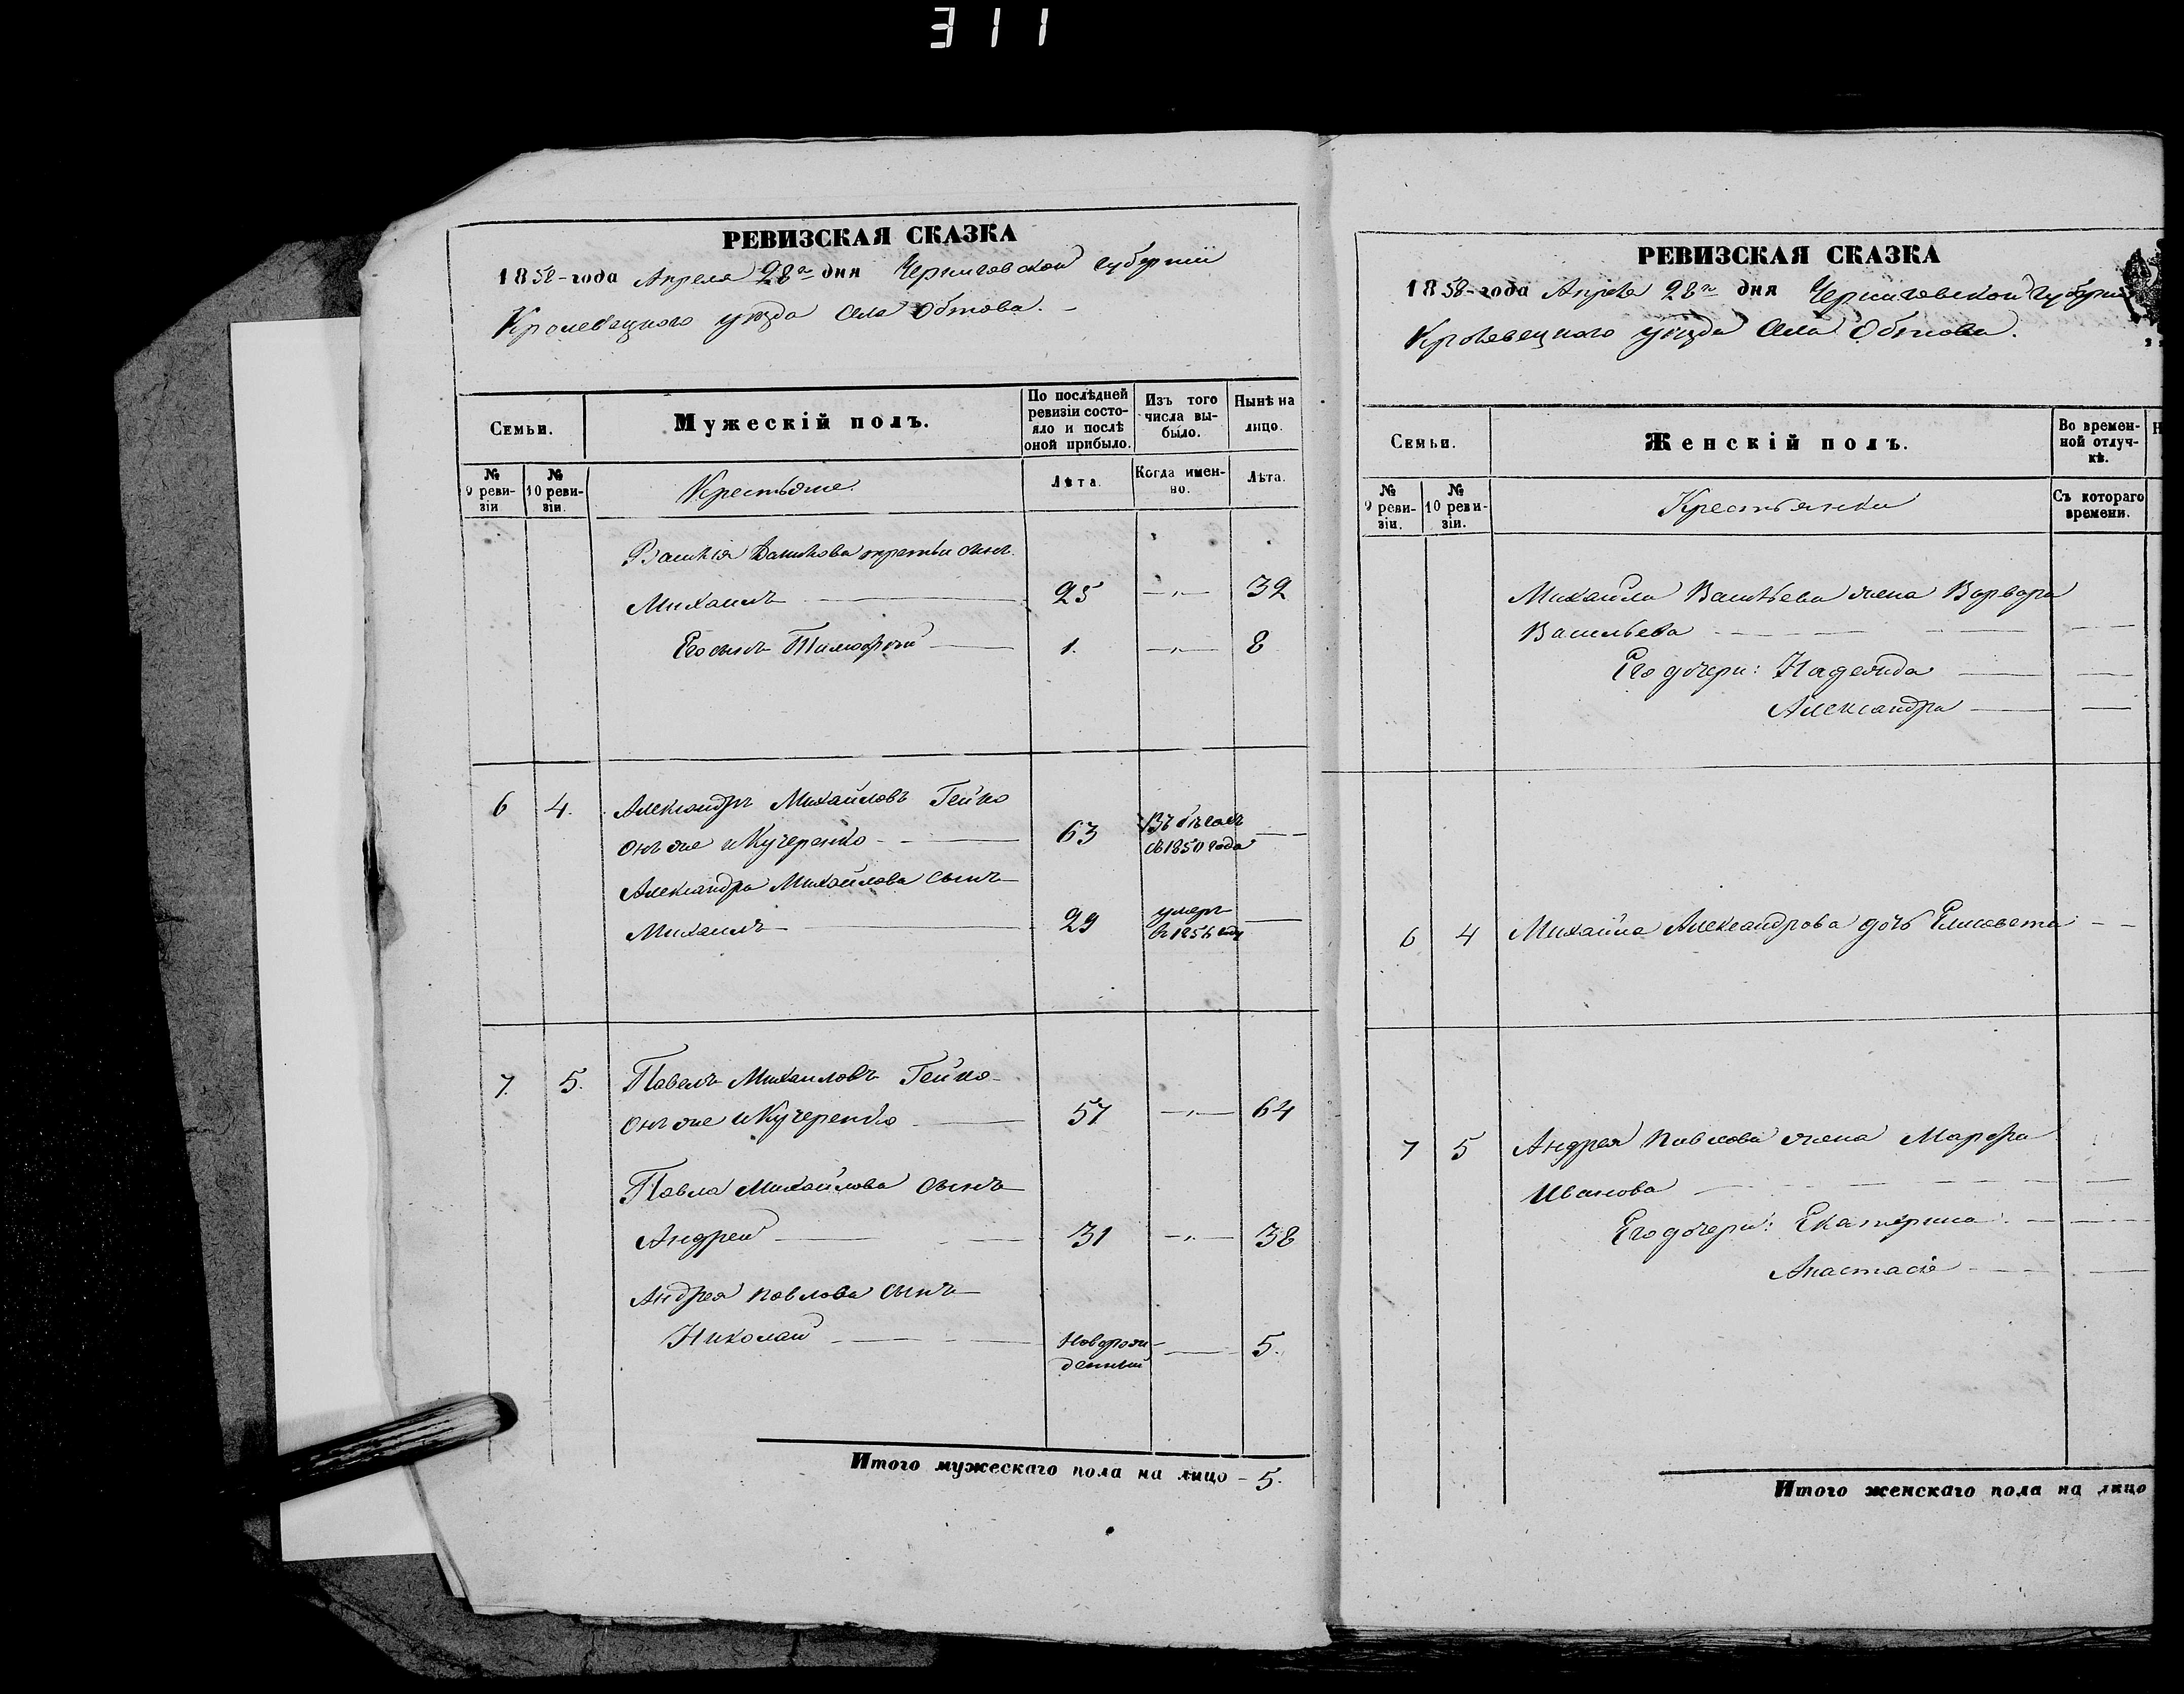 311
РЕВИЗСКАЯ СКАЗКА
1858-года Апреля 28го дня Черниговской губернiи
Кролевецкого уѣзда Села Обтова. -
Семьи.
Мужескiй полъ.
По послѣдней
ревизiи состо-
яло и послѣ
оной прибыло.
Изъ того
числа вы-
было.
Нынѣ на
лицо.
№
9 реви-
зiи
№
10 реви-
зiи.
Крестьяне.
Лѣта.
Когда имен-
но.
Лѣта.
третьи сынъ
Михаилъ 25 —„— 32
Его сынъ Тимофей 1. —„— 8
6 4. Александръ Михайловъ Гейко
онъ же и Кучеренко 63 —
въ бѣгахъ
съ 1850 года
Александра Михайлова сынъ
Михаилъ 29 —
умеръ
въ 1856 году
7. 5. Павелъ Михаиловъ Гейко
онъ же и Кучеренко 57 —„— 64
Павла Михайлова сынъ
Андрей 31 —„— 38
Андрея Павлова сынъ
Николай — 5.
Новорож-
денный
Итого мужескаго пола на лицо - 5.
РЕВИЗСКАЯ СКАЗКА
1858-года Апреля 28го дня Черниговской Губернiи
Кролевецкого уѣзда Села Обтова.
Семьи.
Женскiй полъ.
Во времен-
ной отлуч-
кѣ.
Н
№
9 реви-
зiи.
№
10 реви-
зiи.
Крестьянки
Съ котораго
времени.
Михайла Васильева жена Варвара
Васильева
Его дочери: Надежда
Александра
6 4 Михайла Александрова дочь Елисавета
7 5 Андрея Павлова жена Марфа
Иванова
Его дочери: Екатерина
Анастасiя
Итого женскаго пола на лицо